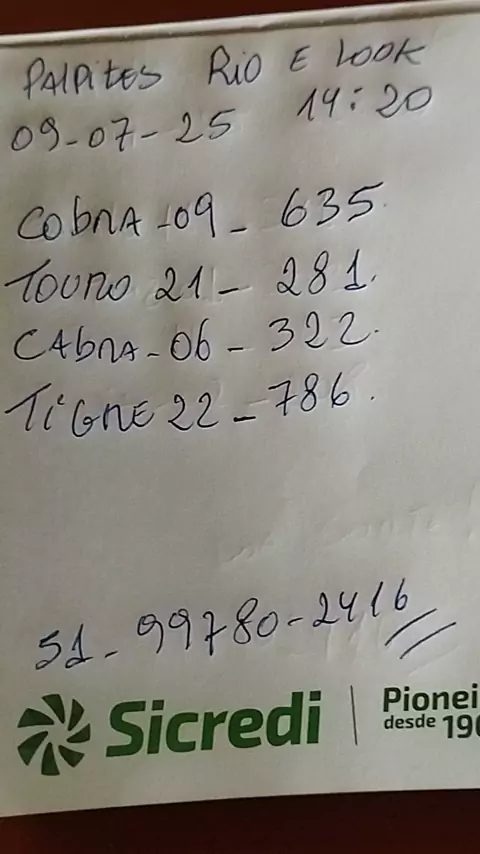 PALPITES RIO E LOOK
09-07-25 14:20
COBRA-09-635.
TOURO 21-281.
CABRA-06-322.
TIGRE 22-786.
51-99780-2416
Sicredi | Pionei
desde 190